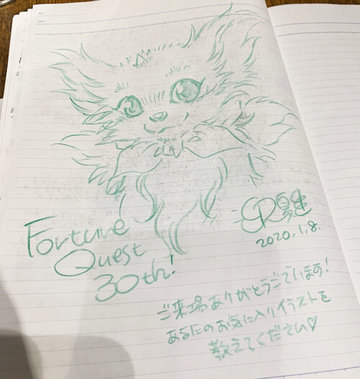 Fortune
Quest
30th!
迎夏生
2020.1.8.
ご来場ありがとうございます!
あなたのお気に入りイラストを
教えてください♡